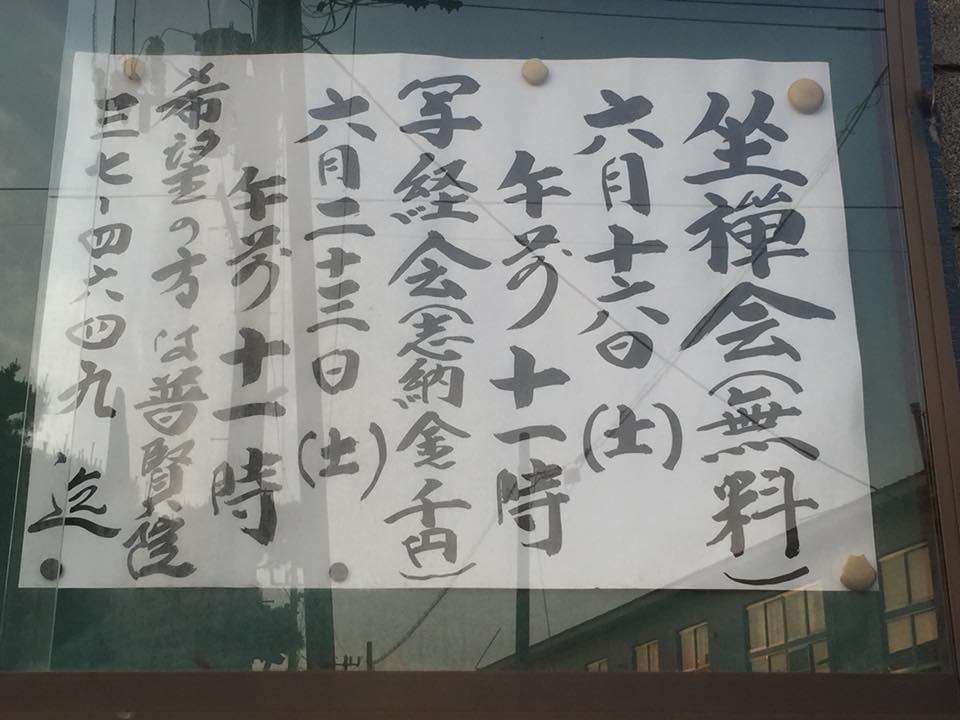 坐禅会(無料)
六月十六日(土)
午前十一時
写経会(志納金千円)
六月二十三日(土)
午前十一時
希望の方は普賢院
三七-四六四九 迄